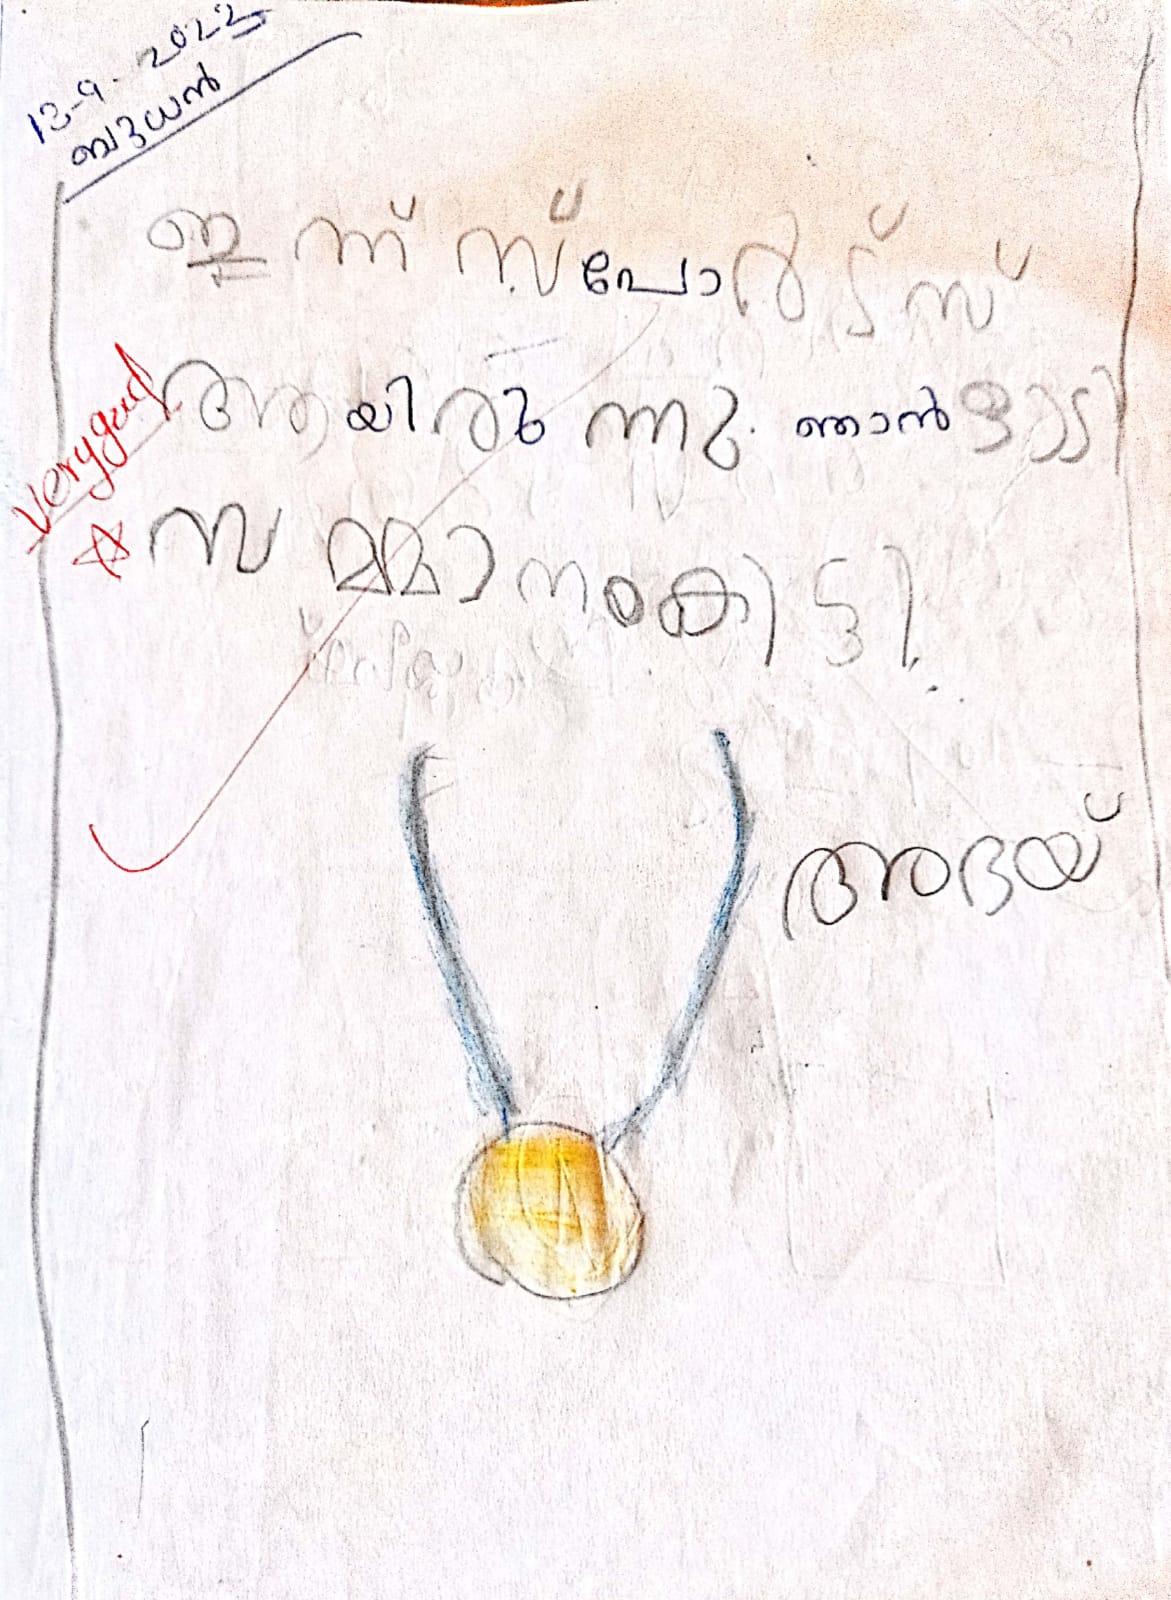 13-9-2023
ബുധൻ
ഇന്ന് സ്പോർട്സ്
ആയിരുന്നു. ഞാൻ ഓടി
സമ്മാനംകിട്ടി.
Very good
അഭയ്